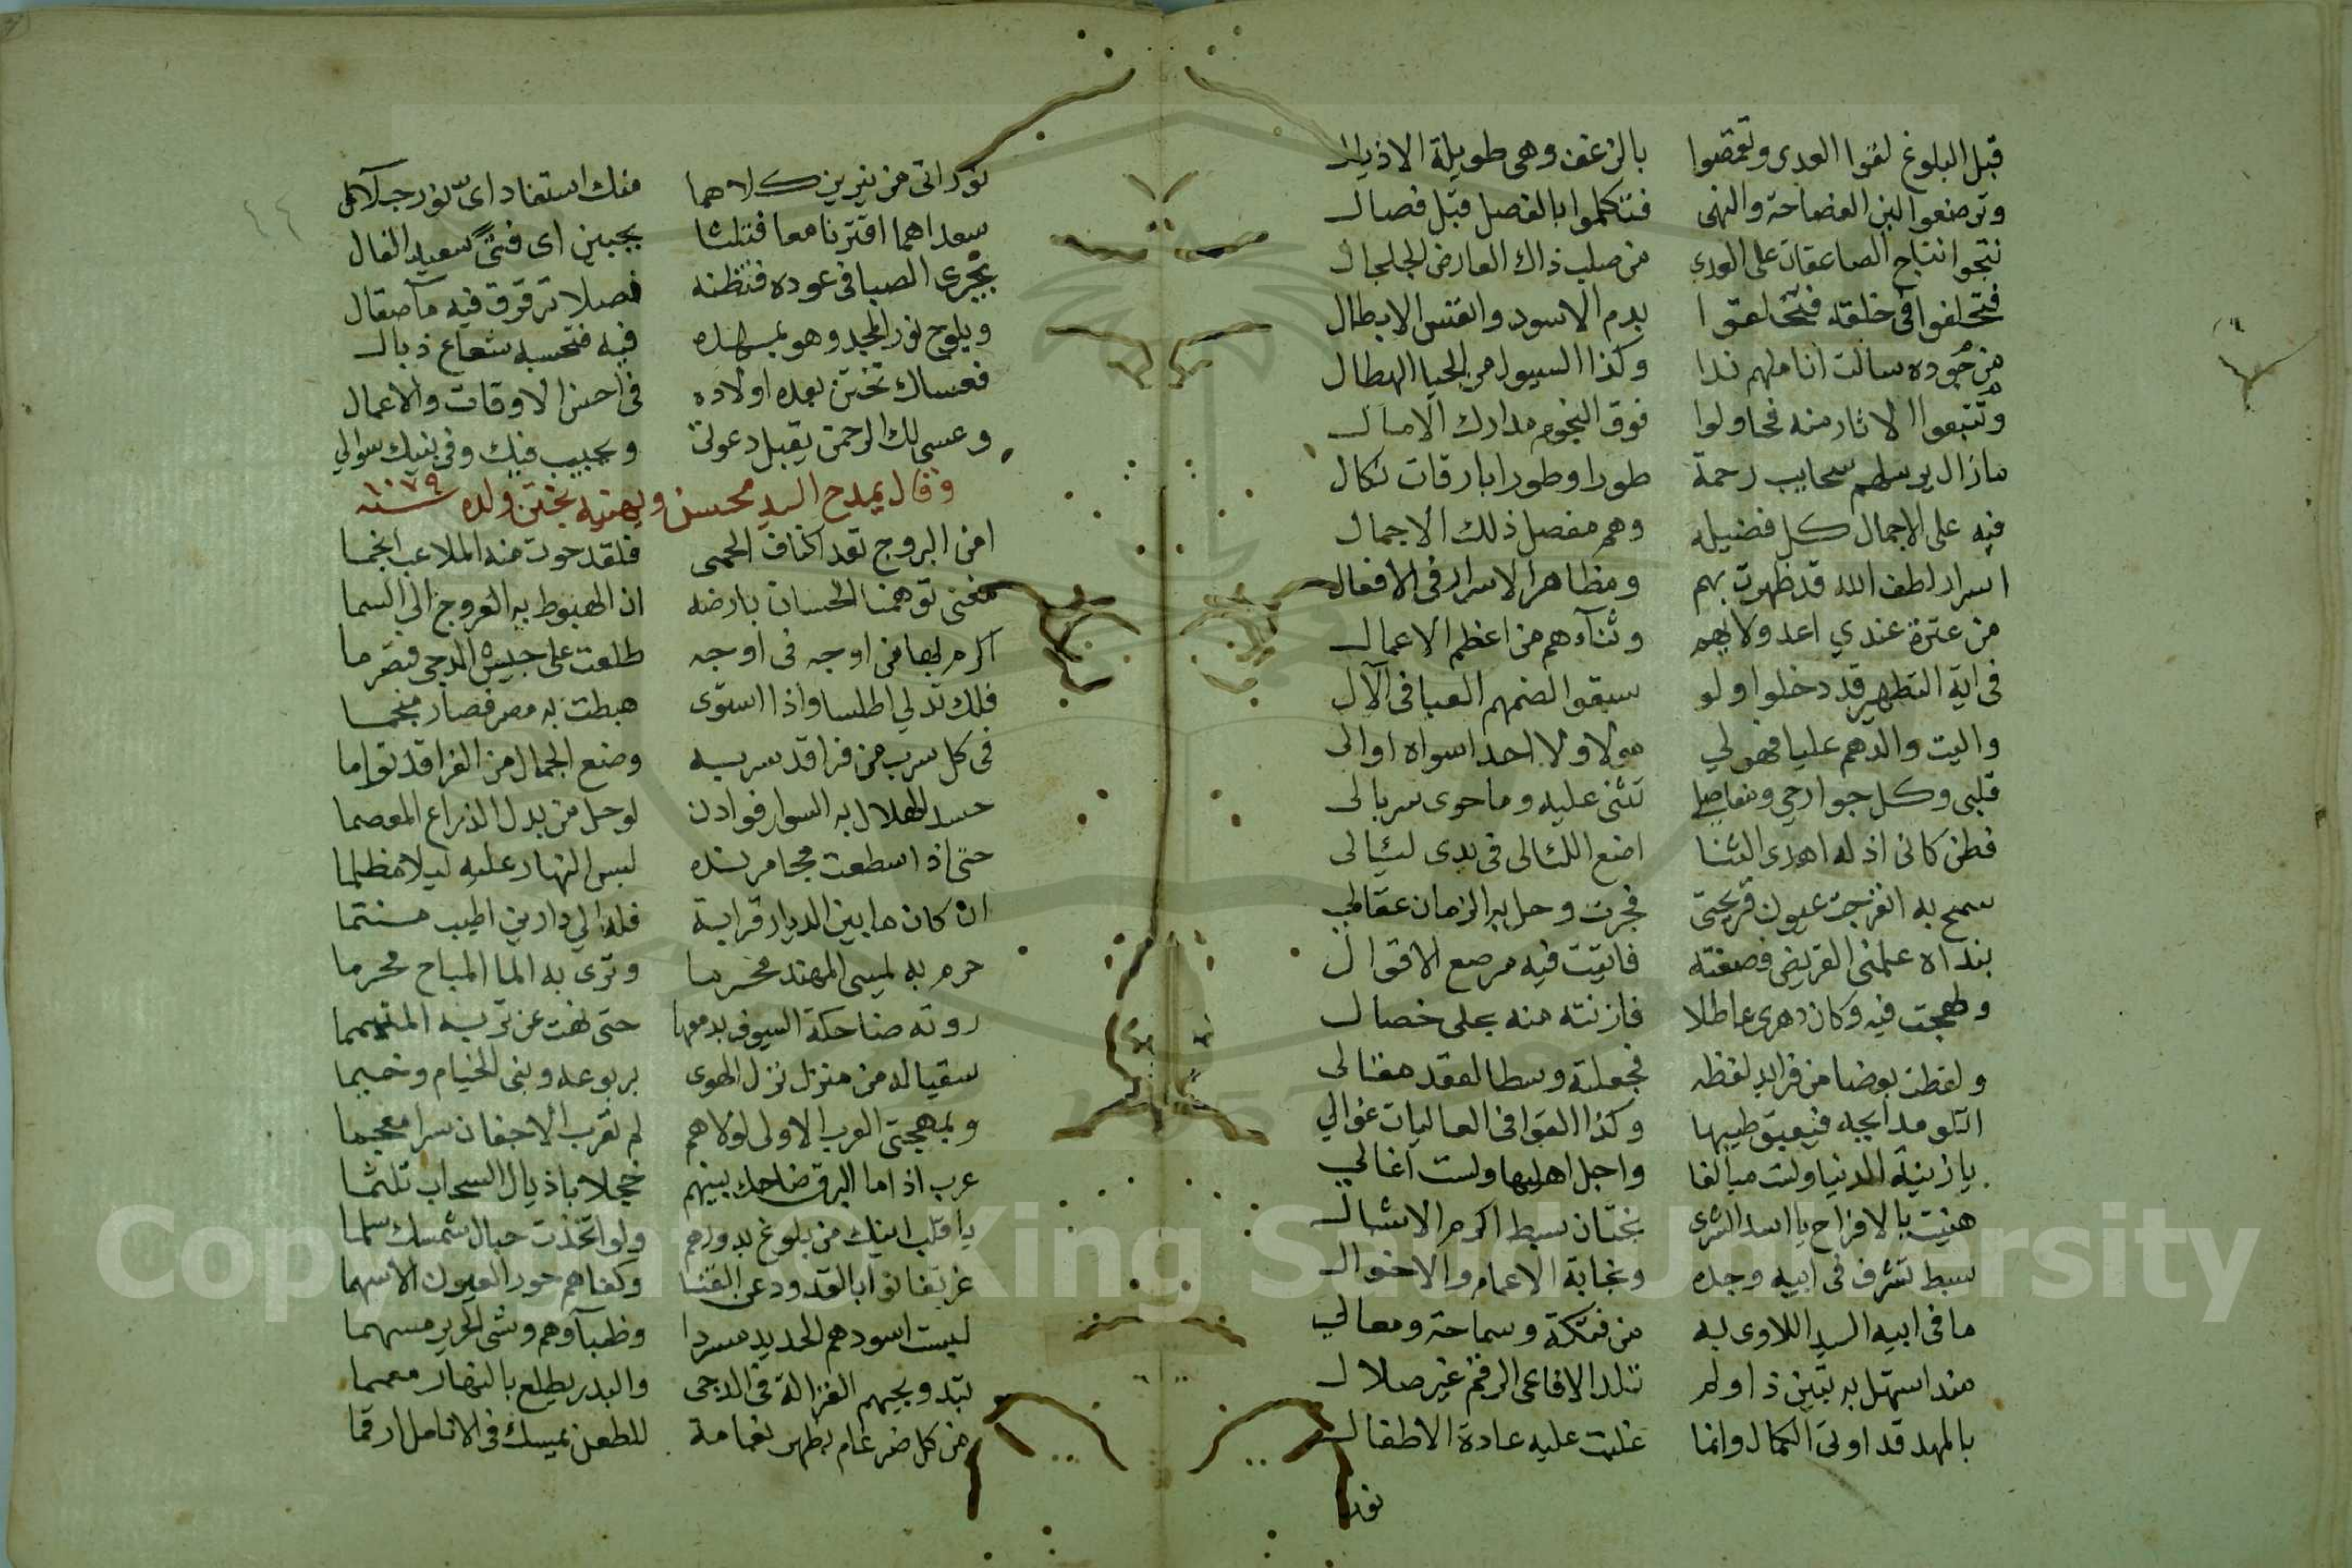 قبل البلوغ لقوا العدى وتقمصوا بالزغف وهي طويلة الاذيال
وترضعوا لبن الفصاحة والنهى فتكلموا بالفصل قبل فصال
نتجوا انتاج الصاعقات على العدى من صلب ذاك العارض الجلجال
فتخلفوا في خلقه فتخلقوا بدم الاسود وانفس الابطال
من جوده سالت اناملهم ندا وكذا السيول من الحيا الهطال
وتتبعوا الاثار منه فحاولوا فوق النجوم مدارك الامال
مازال يرسلهم سحايب رحمة طورا وطورا بارقات نكال
فيه على الاجمال كل فضيله وهم مفصل ذلك الاجمال
اسرار لطف الله قد ظهرت بهم ومظاهر الاسرار في الافعال
من عترة عندي اعد ولائهم وثنآءهم من اعظم الاعمال
في اية التطهير قد دخلوا ولو سبقوا لضمهم العبا في الآل
واليت والدهم عليا فهو لي مولا ولا احدا سواه اوالى
قلبي وكل جوارحي ومفاصلي تثنى عليه وما حوى سربالى
فطن كانى اذ له اهدى الثنا اضع اللئالى في يدى لئالى
سمح به انفرجت عيون قريحتى فجرت وحل به الزمان عقالي
بنداه علمنى القريض فصغته فاتيت فيه مرصع الاقوال
ولهجت فيه وكان دهرى عاطلا فازنته منه بحلى خصال
ولفظت بعضا من فرايد لفظه فجعلته وسطا لعقد مقالى
اتلو مدايحه فيعبق طيبها وكذا القوافى العاليات غوالي
يا زينة الدنيا ولست مبالغا واجل اهليها ولست اغالي
هنيت بالافراح يا اسد الشرى بختان سبط اكرم الاشبال
سبط تشرف في ابيه وجده ونجابة الاعمام والاخوال
ما فى ابيه السيد اللاوى به من فتكة وسماحة ومعالي
منذ استهل به تبين ذا ولم تلد الافاعى الرقم غير صلال
بالمهد قد اوتى الكمال وانما غلبت عليه عادة الاطفال
نور
نور اتى من نيرين كلاهما منك استفاد اى نور جلال
سعداهما اقترنا معا فتثلثا بجبين اى فتى سعيد الفال
يجرى الصبا فى عوده فتظنه نصلا ترقرق فيه مآ صقال
ويلوح نور المجد وهو بمهده فيه فتحسبه شعاع ذبال
فعساك تختن بعده اولاده فى احسن الاوقات والاعمال
وعسى لك الرحمن يقبل دعوتى ويجيب فيك وفى بنيك سوالي
وقال يمدح السيد محسن ويهنيه بختن ولده سنة ١٠٧٩
امن البروج تعد اكناف الحمى فلقد حوت منه الملاعب انجما
مغنى توهمنا الحسان بارضه ان الهبوط به العروج الى السما
اكرم بها من اوجه فى اوجه طلعت على جيش الدجى فتصرما
فلك تدلى اطلسا واذا استوى هبطت به مضر فصار منجما
فى كل سرب من فراقد سربه وضع الجمال من الفراقد توءما
حسد الهلال به السوار فود ان لو حل من بدل الذراع المعصما
حتى اذ اسطعت مجامر نده لبس النهار عليه ليلا مظلما
ان كان ما بين الديار قرابة فله الى دارين اطيب منتما
حرم به يمسى المهند محرما وترى به الما المباح محرما
روته ضاحكة السيوف بدمعها حتى نهت عن تربه المتيمما
سقيا له من منزل نزل الهوى بربوعه وبنى الخيام وخيما
وبمهجتى العرب الاولى لولاهم لم تعرب الاجفان سرا معجما
عرب اذا ما البرق ضاحك بينهم خجلا باذيال السحاب تلثما
يا قلب اينك من بلوغ بدورهم ولو اتخذت حبال شمسك سلما
غر تغانوا بالقدود عن القنا وكفاهم حور العيون الاسهما
لبست اسودهم الحديد مسردا وظبآؤهم وشى الحرير مسهما
تبدو بحيهم الغزالة فى الدجى والبدر يطلع بالنهار معمما
من كل ضرغام بظهر نعامة للطعن يمسك فى الانامل ارقما
٤٤
Copyright © King Saud University
1957